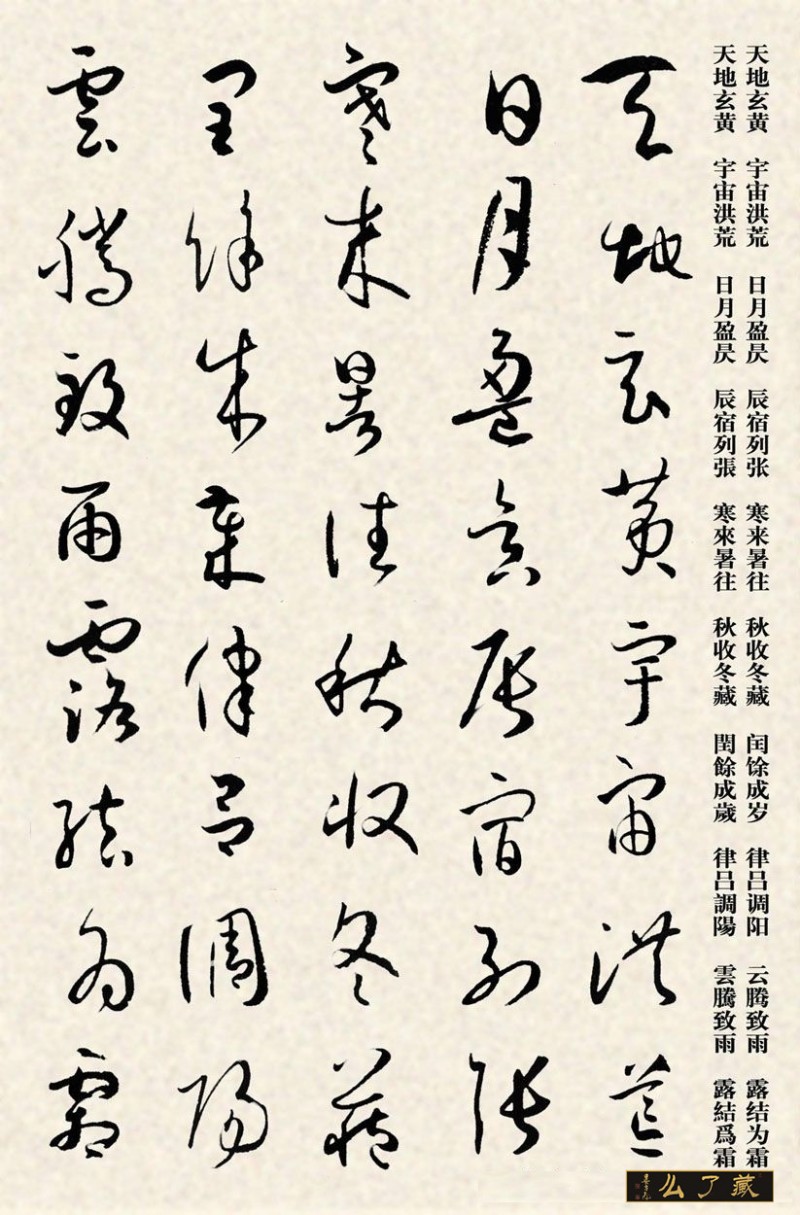 天地玄黄 宇宙洪荒 日月盈昃 辰宿列张 寒来暑往 秋收冬藏 闰馀成岁 律吕调阳 云腾致雨 露结为霜
天地玄黄 宇宙洪荒 日月盈昃 辰宿列張 寒來暑往 秋收冬藏 閏餘成歲 律吕調陽 雲騰致雨 露結爲霜
天地玄黄宇宙洪荒
日月盈昃辰宿列張
寒来暑往秋收冬藏
閏餘成歲律吕調陽
雲騰致雨露結為霜
藏了么